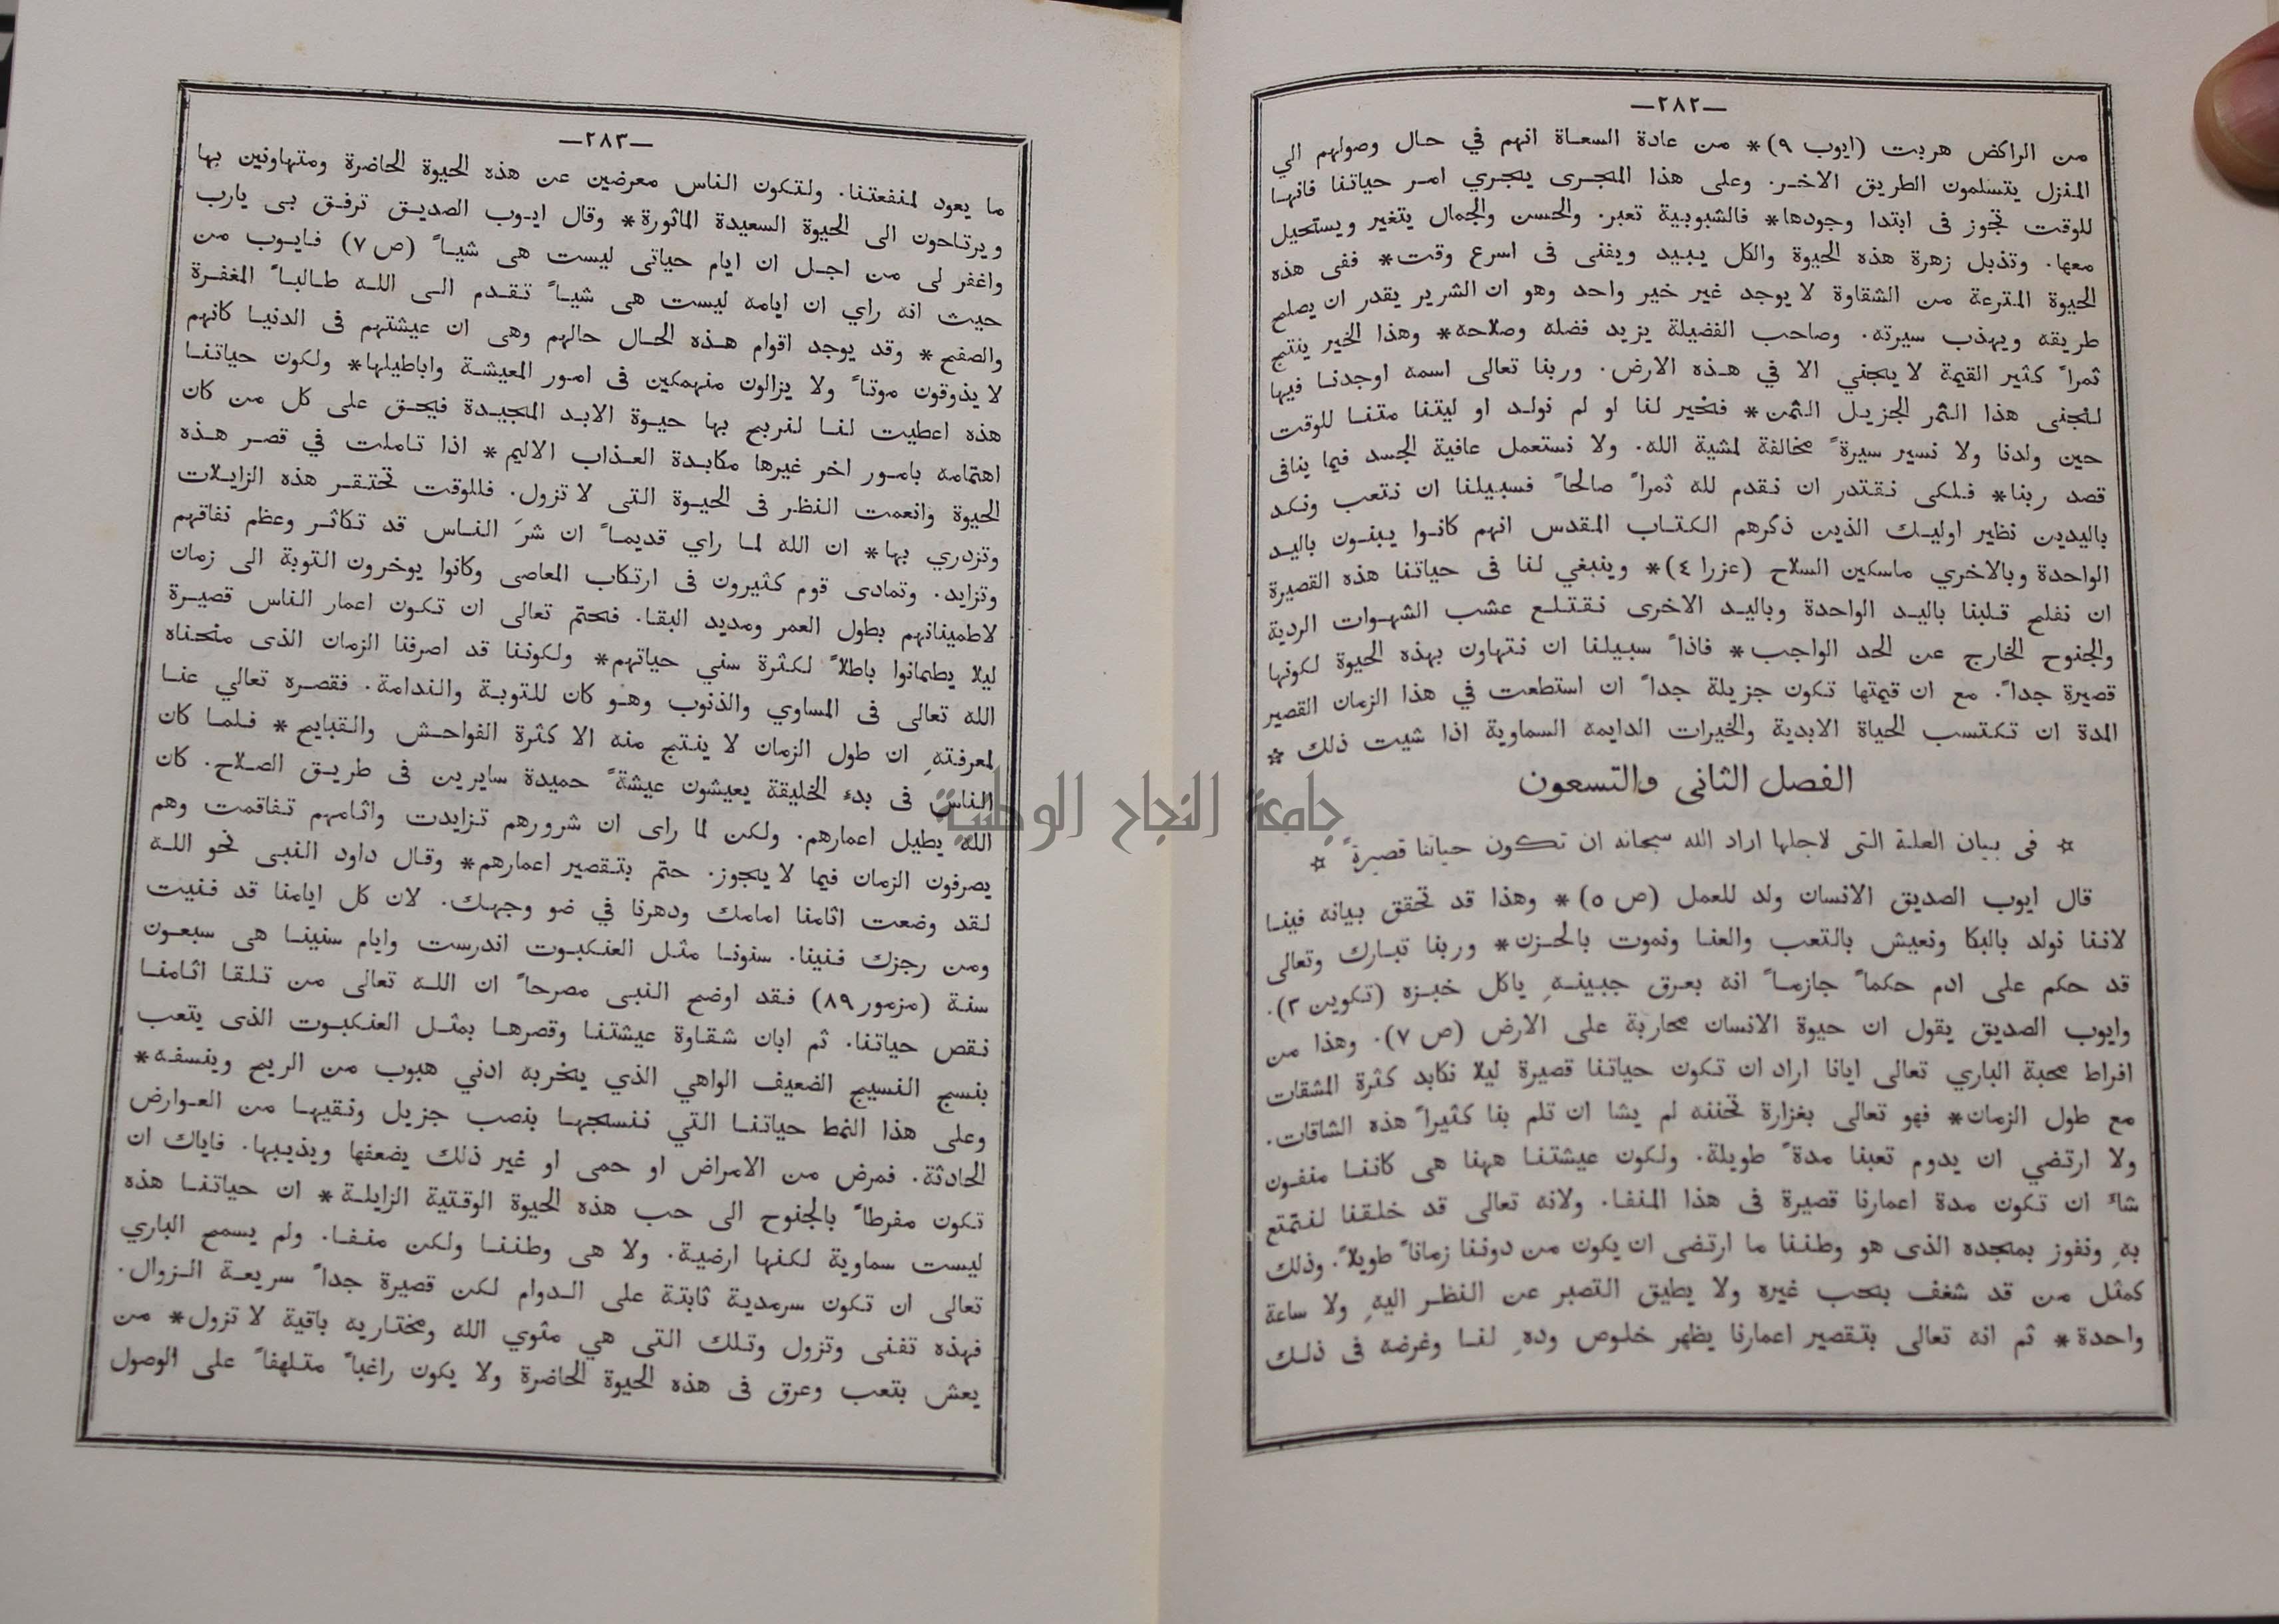 —٢٨٢—
من الراكض هربت (ايوب ٩)* من عادة السعاة انهم في حال وصولهم الي
المنزل يتسلمون الطريق الاخر. وعلى هذا المجرى يجري امر حياتنا فانها
للوقت تجوز فى ابتدا وجودها* فالشبوبية تعبر. والحسن والجمال يتغير ويستحيل
معها. وتذبل زهرة هذه الحيوة والكل يبيد ويفنى فى اسرع وقت* ففى هذه
الحيوة المترعة من الشقاوة لا يوجد غير خير واحد وهو ان الشرير يقدر ان يصلح
طريقه ويهذب سيرته. وصاحب الفضيلة يزيد فضله وصلاحه* وهذا الخير ينتج
ثمراً كثير القيمة لا يجني الا في هذه الارض. وربنا تعالى اسمه اوجدنا فيها
لنجنى هذا الثمر الجزيل الثمن* فخير لنا لو لم نولد او ليتنا متنا للوقت
حين ولدنا ولا نسير سيرةً مخالفة لمشية الله. ولا نستعمل عافية الجسد فيما ينافى
قصد ربنا* فلكى نقتدر ان نقدم لله ثمراً صالحاً فسبيلنا ان نتعب ونكد
باليدين نظير اوليك الذين ذكرهم الكتاب المقدس انهم كانوا يبنون باليد
الواحدة وبالاخري ماسكين السلاح (عزرا ٤)* وينبغي لنا فى حياتنا هذه القصيرة
ان نفلح قلبنا باليد الواحدة وباليد الاخرى نقتلع عشب الشهوات الردية
والجنوح الخارج عن الحد الواجب* فاذاً سبيلنا ان نتهاون بهذه الحيوة لكونها
قصيرة جداً. مع ان قيمتها تكون جزيلة جداً ان استطعت في هذا الزمان القصير
المدة ان تكتسب الحياة الابدية والخيرات الدايمه السماوية اذا شيت ذلك ☆
الفصل الثانى والتسعون
☆ فى بيان العلة التى لاجلها اراد الله سبحانه ان تكون حياتنا قصيرةً ☆
قال ايوب الصديق الانسان ولد للعمل (ص ٥)* وهذا قد تحقق بيانه فينا
لاننا نولد بالبكا ونعيش بالتعب والعنا ونموت بالحزن* وربنا تبارك وتعالى
قد حكم على ادم حكماً جازماً انه بعرق جبينهِ ياكل خبزه (تكوين ٣).
وايوب الصديق يقول ان حيوة الانسان محاربة على الارض (ص ٧). وهذا من
افراط محبة الباري تعالى ايانا اراد ان تكون حياتنا قصيرة ليلا نكابد كثرة المشقات
مع طول الزمان* فهو تعالى بغزارة تحننه لم يشا ان تلم بنا كثيراً هذه الشاقات.
ولا ارتضي ان يدوم تعبنا مدةً طويلة. ولكون عيشتنا ههنا هى كاننا منفون
شاء ان تكون مدة اعمارنا قصيرة فى هذا المنفا. ولانه تعالى قد خلقنا لنتمتع
بهِ ونفوز بمجده الذى هو وطننا ما ارتضى ان يكون من دوننا زماناً طويلاً. وذلك
كمثل من قد شغف بحب غيره ولا يطيق التصبر عن النظر اليهِ ولا ساعة
واحدة* ثم انه تعالى بتقصير اعمارنا يظهر خلوص ودهِ لنا وغرضه فى ذلك
—٢٨٣—
ما يعود لمنفعتنا. ولتكون الناس معرضين عن هذه الحيوة الحاضرة ومتهاونين بها
ويرتاحون الى الحيوة السعيدة الماثورة* وقال ايوب الصديق ترفق بى يارب
واغفر لى من اجل ان ايام حياتى ليست هى شياً (ص ٧) فايوب من
حيث انه راي ان ايامه ليست هى شياً تقدم الى الله طالباً المغفرة
والصفح* وقد يوجد اقوام هذه الحال حالهم وهى ان عيشتهم فى الدنيا كانهم
لا يذوقون موتاً ولا يزالون منهمكين فى امور المعيشة واباطيلها* ولكون حياتنا
هذه اعطيت لنا لنربح بها حيوة الابد المجيدة فيحق على كل من كان
اهتمامه بامور اخر غيرها مكابدة العذاب الاليم* اذا تاملت في قصر هذه
الحيوة وانعمت النظر فى الحيوة التى لا تزول. فللوقت تحتقر هذه الزايلات
وتزدري بها* ان الله لما راي قديماً ان شرَ الناس قد تكاثر وعظم نفاقهم
وتزايد. وتمادى قوم كثيرون فى ارتكاب المعاصى وكانوا يوخرون التوبة الى زمان
لاطمينانهم بطول العمر ومديد البقا. فحتم تعالى ان تكون اعمار الناس قصيرة
ليلا يطمانوا باطلاً لكثرة سني حياتهم* ولكوننا قد اصرفنا الزمان الذى منحناه
الله تعالى فى المساوي والذنوب وهو كان للتوبة والندامة. فقصره تعالي عنا
لمعرفتهِ ان طول الزمان لا ينتج منه الا كثرة الفواحش والقبايح* فلما كان
الناس فى بدء الخليقة يعيشون عيشةً حميدة سايرين فى طريق الصلاح. كان
اللهُ يطيل اعمارهم. ولكن لما راى ان شرورهم تزايدت واثامهم تفاقمت وهم
يصرفون الزمان فيما لا يجوز. حتم بتقصير اعمارهم* وقال داود النبى نحو الله
لقد وضعت اثامنا امامك ودهرنا في ضو وجهك. لان كل ايامنا قد فنيت
ومن رجزك فنينا. سنونا مثل العنكبوت اندرست وايام سنينا هى سبعون
سنة (مزمور ٨٩) فقد اوضح النبى مصرحاً ان الله تعالى من تلقا اثامنا
نقص حياتنا. ثم ابان شقاوة عيشتنا وقصرها بمثل العنكبوت الذى يتعب
بنسج النسيج الضعيف الواهي الذي يخربه ادني هبوب من الريح وينسفه*
وعلى هذا النمط حياتنا التي ننسجها بنصب جزيل ونقيها من العوارض
الحادثة. فمرض من الامراض او حمى او غير ذلك يضعفها ويذيبها. فاياك ان
تكون مفرطاً بالجنوح الى حب هذه الحيوة الوقتية الزايلة* ان حياتنا هذه
ليست سماوية لكنها ارضية. ولا هى وطننا ولكن منفا. ولم يسمح الباري
تعالى ان تكون سرمدية ثابتة على الدوام لكن قصيرة جداً سريعة الزوال.
فهذه تفنى وتزول وتلك التى هي مثوي الله ومختاريه باقية لا تزول* من
يعش بتعب وعرق فى هذه الحيوة الحاضرة ولا يكون راغباً متلهفاً على الوصول
جامعة النجاح الوطنية